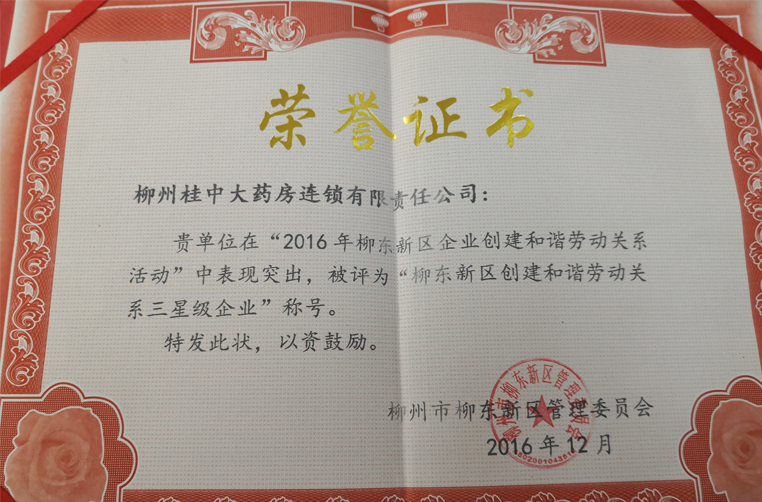 荣誉证书
柳州桂中大药房连锁有限责任公司：
贵单位在“2016年柳东新区企业创建和谐劳动关系
活动”中表现突出，被评为“柳东新区创建和谐劳动关
系三星级企业”称号。
特发此状，以资鼓励。
柳州市柳东新区管理委员会
柳州市柳东新区管理委员会
2016年12月